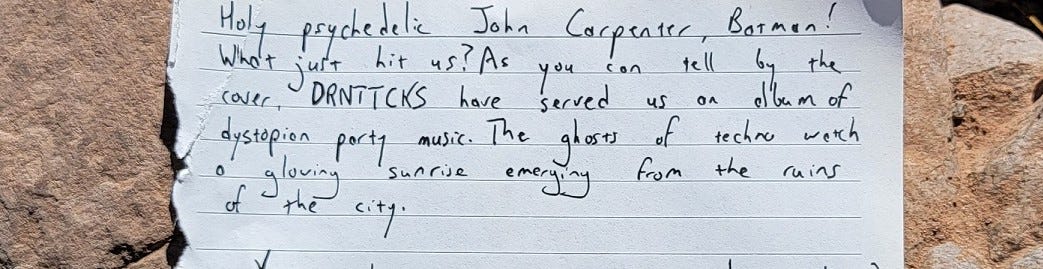 Holy psychedelic John Carpenter, Batman!
What just hit us? As you can tell by the
cover, DRNTTCKS have served us an album of
dystopian party music. The ghosts of techno watch
a glowing sunrise emerging from the ruins
of the city.